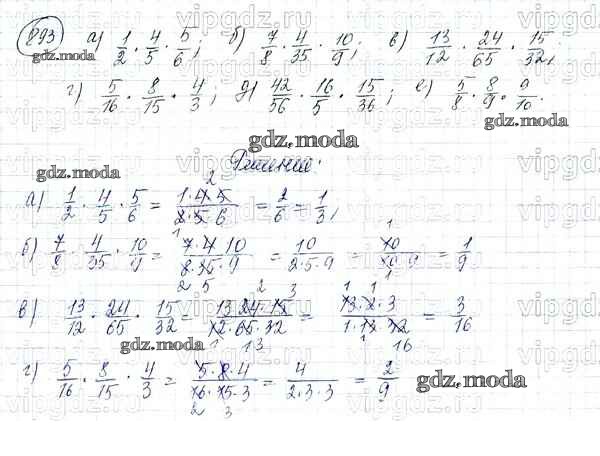 893 а) 1/2 · 4/5 · 5/6; б) 7/8 · 4/35 · 10/9; в) 13/12 · 24/65 · 15/32;
г) 5/16 · 8/15 · 4/3; д) 42/56 · 16/5 · 15/36; е) 5/8 · 8/9 · 9/10.
Решение:
а) 1/2 · 4/5 · 5/6 = 1·4·5/2·5·6 = 2/6 = 1/3;
б) 7/8 · 4/35 · 10/9 = 7·4·10/8·35·9 = 10/2·5·9 = 10/10·9 = 1/9
в) 13/12 · 24/65 · 15/32 = 13·24·15/12·65·32 = 13·2·3/1·13·32 = 3/16
г) 5/16 · 8/15 · 4/3 = 5·8·4/16·15·3 = 4/2·3·3 = 2/9
gdz.moda
gdz.moda
gdz.moda
gdz.moda
gdz.moda
gdz.moda
vipgdz.ru